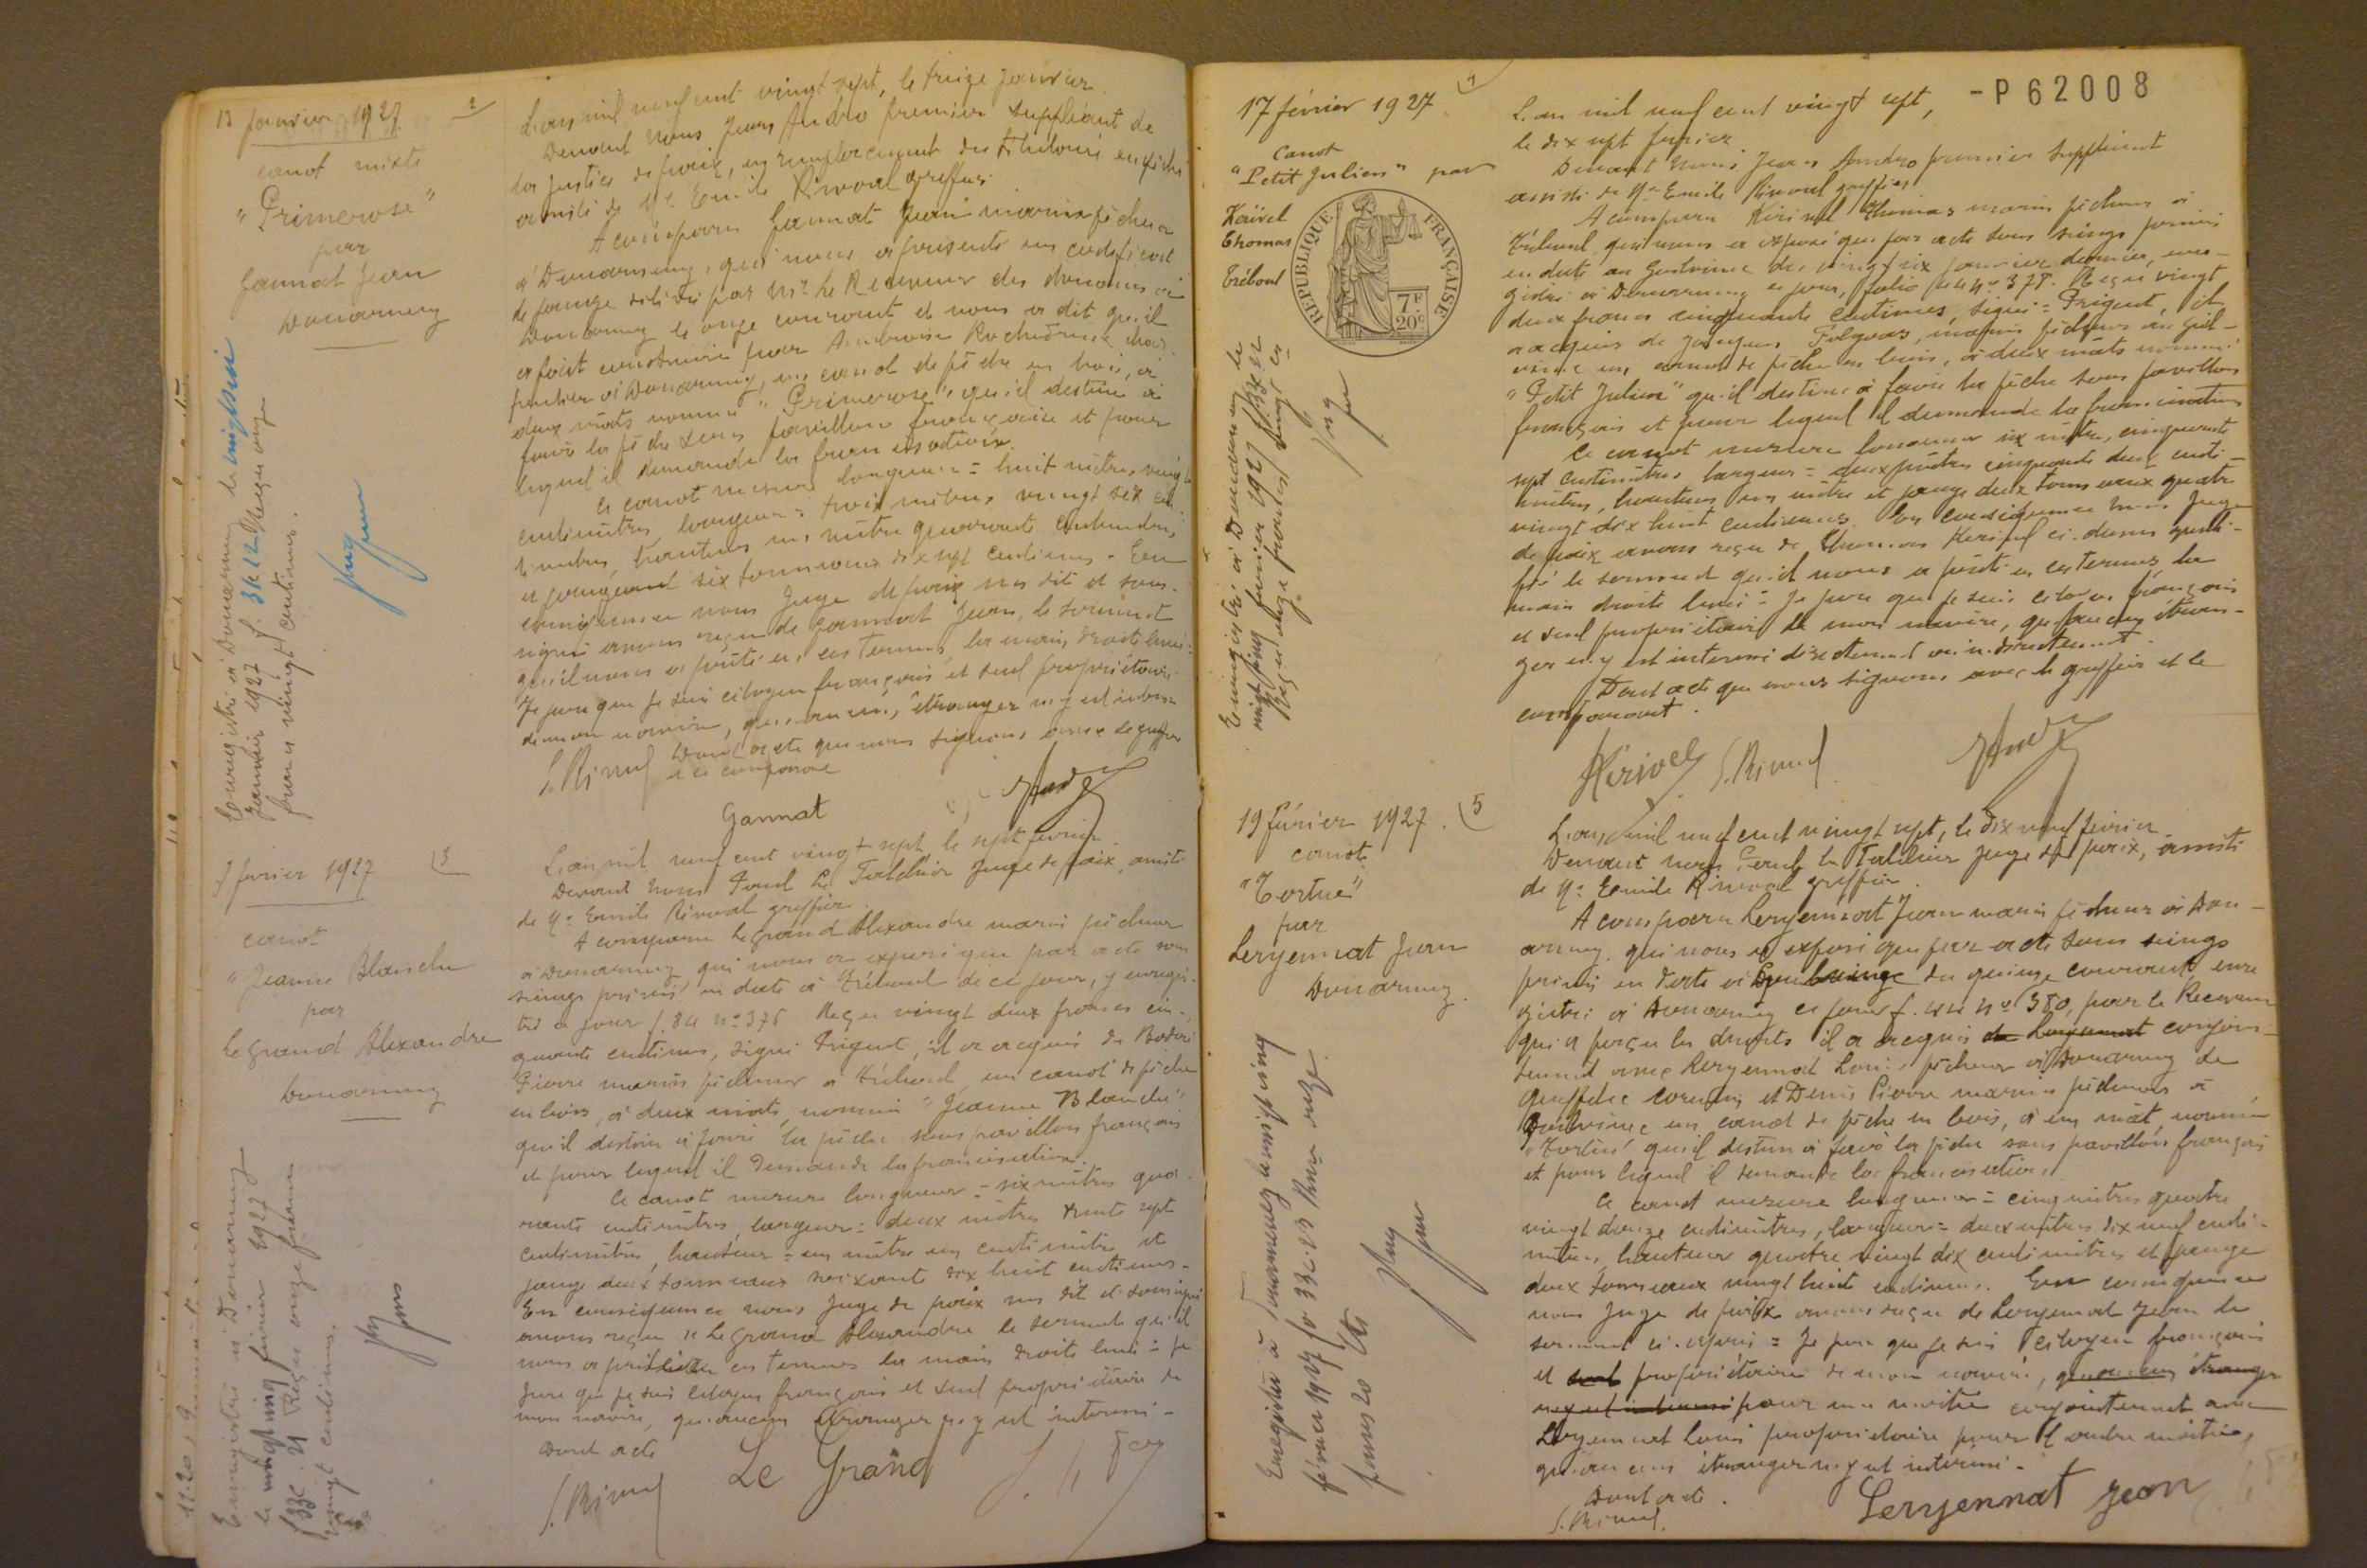 13 janvier 1927
2
canot mixte
"Primerose"
par
Gannat Jean
Douarnenez
Enregistré à Douarnenez le vingt six
janvier 1927 f. Reçu onze
francs vingt centimes.
L'an mil neuf cent vingt sept, le treize janvier
Devant nous Jean Andro premier suppléant de
la justice de paix, en remplacement du titulaire empêché
assisté de Me Emile Rivoal greffier
A comparu Gannat Jean marin pêcheur
à Douarnenez, qui nous a présenté un certificat
de jauge délivré par Mr le Receveur des douanes à
Douarnenez le onze courant et nous a dit qu'il
a fait construire par Ambroise
à Douarnenez, un canot de pêche en bois, à
deux mâts nommé "Primerose", qu'il destine à
faire la pêche sous pavillon français et pour
lequel il demande la francisation.
Ce canot mesure longueur = huit mètres vingt
centimètres, largeur = trois mètres vingt six
hauteur un mètre quarante
et jaugeant six tonneaux dix sept centièmes. En
conséquence nous Juge de paix sus dit et sous-
signé avons reçu de Gannat Jean, le serment
qu'il nous a prêté en ces termes, la main droite levée:
Je jure que je suis citoyen français et seul propriétaire
de mon navire, qu'aucun étranger n'y est intéressé
Dont acte que nous signons avec le greffier
et le comparant
Gannat
7 février 1927
3
canot
"Jeanne Blanche
par
Le Grand Alexandre
Douarnenez
Enregistré à Douarnenez
le vingt cinq février 1927
Reçu onze francs
vingt centimes.
L'an mil neuf cent vingt sept, le sept février
Devant nous Juge de paix, assisté
de Me Emile Rivoal greffier.
A comparu Le Grand Alexandre marin pêcheur
à Douarnenez qui nous a exposé que par acte sous
seings privés en date à Tréboul de ce jour, y enregis-
tré ce jour f. 84 no 375 Reçu vingt deux francs cin-
quante centimes, signé Prigent, il a acquis de
Pierre marin pêcheur à Tréboul, un canot de pêche
en bois, à deux mâts, nommé "Jeanne Blanche"
qu'il destine à faire la pêche sous pavillon français
et pour lequel il demande la francisation.
Ce canot mesure longueur = six mètres qua-
rante centimètres, largeur = deux mètres trente sept
centimètres, hauteur = un mètre un centimètre et
jauge deux tonneaux soixante dix huit centièmes-
En conséquence nous Juge de paix sus dit et soussigné
avons reçu de Le Grand Alexandre le serment qu'il
nous a prêté en ces termes la main droite levée = Je
jure que je suis citoyen français et seul propriétaire de
mon navire, qu'aucun étranger n'y est intéressé-
Dont acte
Le Grand
17 février 1927
4
canot
"Petit Julien" par
Kérivel
Thomas
Tréboul
RÉPUBLIQUE FRANÇAISE
7F
20c
Enregistré à Douarnenez le
vingt cinq février 1927
Reçu onze francs vingt ces
-P62008
L'an mil neuf cent vingt sept,
le dix sept février
Devant nous Jean Andro premier suppléant
assisté de Me Emile Rivoal greffier
A comparu Kérivel Thomas marin pêcheur à
Tréboul, qui nous a exposé que par acte sous seings privés
en date au Guilvinec du vingt six janvier dernier, enre-
gistré à Douarnenez ce jour, folio no 378. Reçu vingt
deux francs cinquante centimes, signé = Prigent, il
a acquis de marin pêcheur au Guil-
vinec un canot de pêche en bois, à deux mâts nommé
"Petit Julien" qu'il destine à faire la pêche sous pavillon
français et pour lequel il demande la francisation
Ce canot mesure longueur six mètres, cinquante
sept centimètres largeur = deux mètres cinquante deux centi-
mètres, hauteur un mètre et jauge deux tonneaux quatre
vingt dix huit centièmes. En conséquence nous Juge
de paix avons reçu de Thomas Kérivel ci-dessus quali-
fié le serment qu'il nous a prêté en ces termes, la
main droite levée = Je jure que je suis citoyen français
et seul propriétaire de mon navire, qu'aucun étran-
ger n'y est intéressé directement ou indirectement.
Dont acte que nous signons avec le greffier et le
comparant.
Kérivel
19 février 1927.
5
canot
"Tortue"
par
Leryennat Jean
Douarnenez.
Enregistré à Douarnenez le vingt cinq
février 1927 Reçu onze
francs 20 cts
L'an mil neuf cent vingt sept, le dix neuf février
Devant nous Juge de paix, assisté
de Me Emile Rivoal greffier.
A comparu Leryennat Jean marin pêcheur à Dou-
arnenez, qui nous a exposé que par acte sous seings
privés en date à du quinze courant, enre-
gistré à Douarnenez ce jour f. no 380, par le Receveur
qui a perçu les droits il a acquis conjoin-
tement avec Leryennat Louis, pêcheur à Douarnenez de
et Denis Pierre marins pêcheurs à
Guilvinec un canot de pêche en bois, à un mât, nommé
"Tortue" qu'il destine à faire la pêche sous pavillon français
et pour lequel il demande la francisation.
Ce canot mesure longueur = cinq mètres quatre
vingt douze centimètres, largeur = deux mètres dix neuf centi-
mètres, hauteur quatre vingt dix centimètres et jauge
deux tonneaux vingt huit centièmes. En conséquence
nous Juge de paix avons reçu de Leryennat Jean le
serment ci-après = Je jure que je suis citoyen français
et seul propriétaire de mon navire, qu'aucun étranger
n'y est intéressé pour une moitié conjointement avec
Leryennat Louis propriétaire pour l'autre moitié,
qu'aucun étranger n'y est intéressé-
Dont acte.
Leryennat Jean